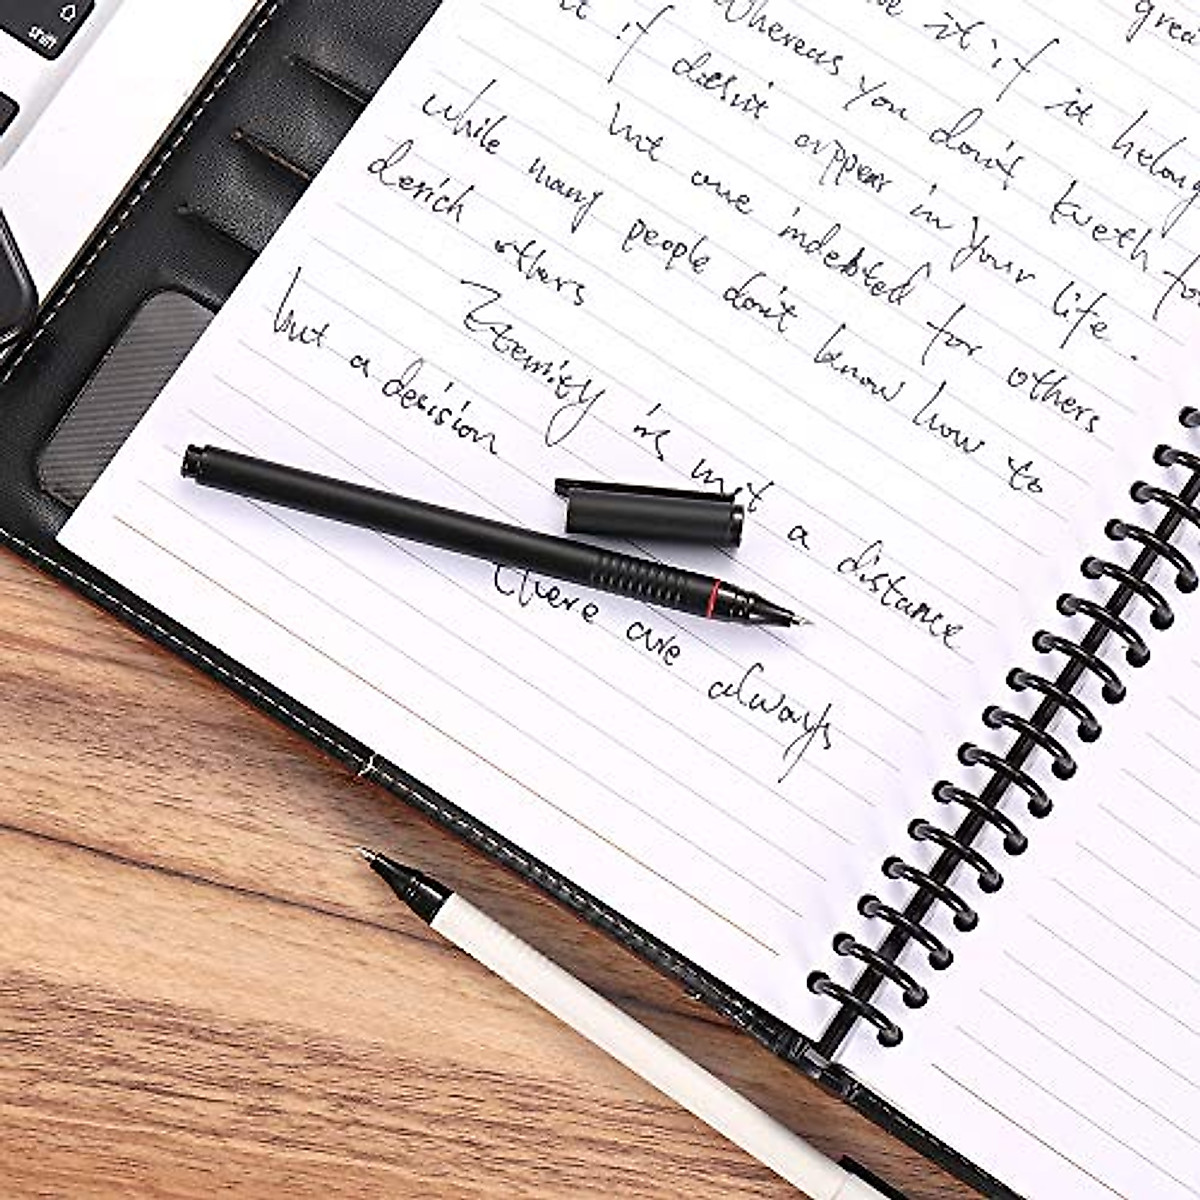 shift
grea
it if it belong
Whereas you don't kueth for
it if doesn't appear in your life.
but one indebted for others
while many people don't know how to
derich others
Eternity is not a distance
but a decision
There are always